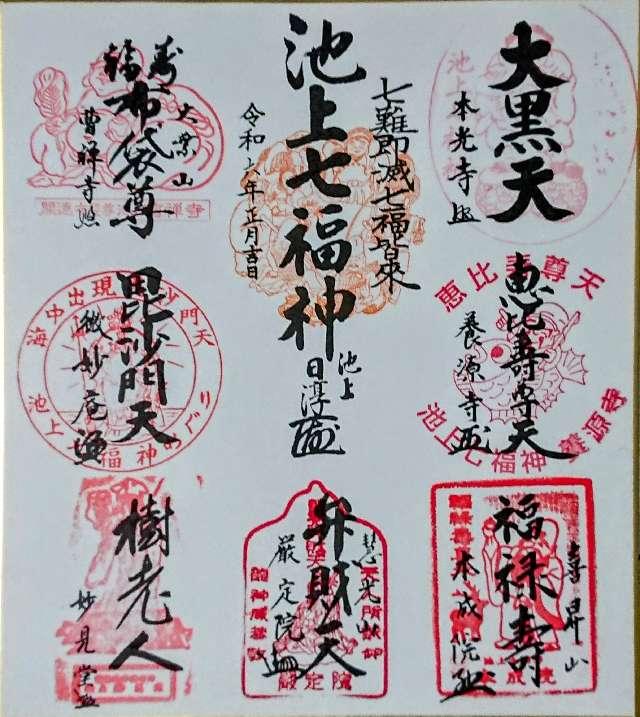 大黒天
本光寺
七難即滅七福皆來
池上七福神
令和六年正月吉日
池上
日淳
大業山
布袋尊
曹禅寺
恵比寿尊天
恵比寿尊天
養源寺
池上七福神 養源寺
毘沙門天
海中出現毘沙門天
微妙庵
池上七福神めぐり
喜昇山
福禄寿
本成院
弁財天
厳定院
厳定院
樹老人
妙見堂